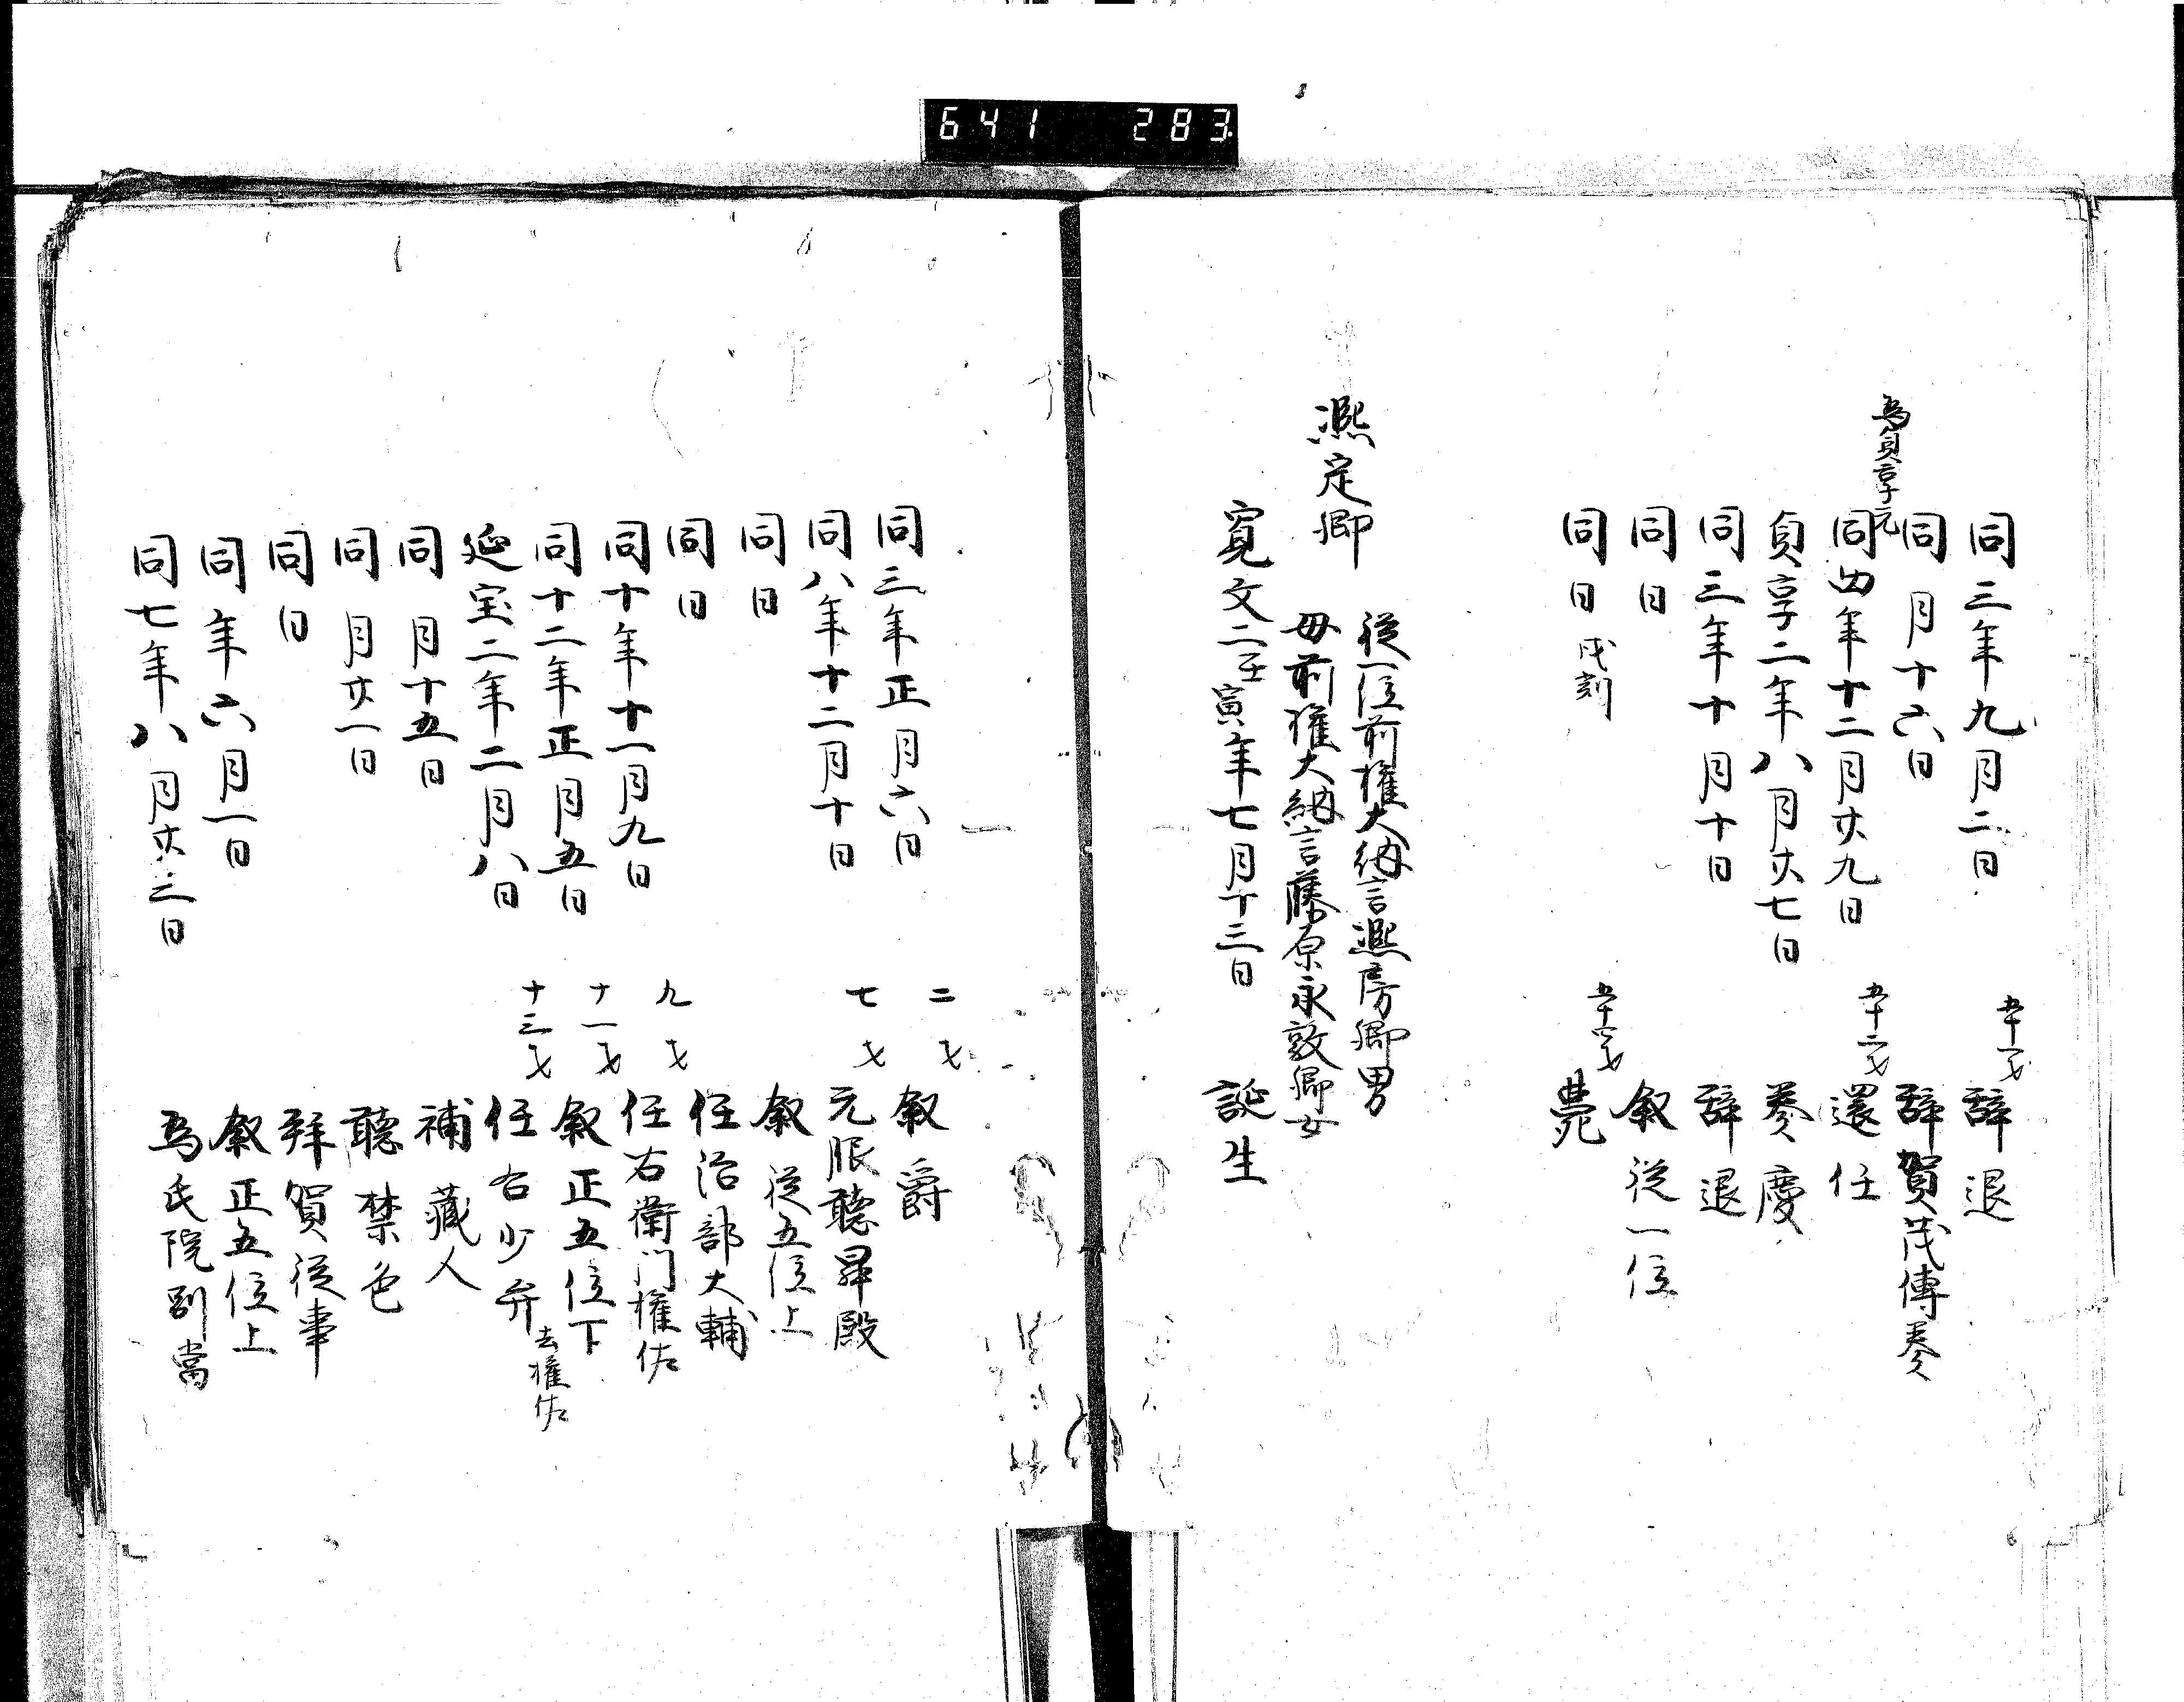 641 283
同三年九月二日 五十一才 辞退
同月十六日 辞賀茂傳奏
為貞享元
同四年十二月廿九日 五十二才 還任
貞享二年八月廿七日 奏慶
同三年十月十日 辞退
同日 叙従一位
同日戌刻 五十四才 薨
熈定卿
従一位前権大納言熈房卿男
母前権大納言藤原永敦卿女
寛文二壬寅年七月十三日 誕生
同三年正月六日 二才 叙爵
同八年十二月十日 七才 元服聴昇殿
同日 叙従五位上
同日 任治部大輔
同十年十一月九日 九才 任右衛門権佐
同十二年正月五日 十一才 叙正五位下
延宝二年二月八日 十三才 任右少弁 去権佐
同月十五日 補蔵人
同月廿一日 聴禁色
同日 拜賀従事
同年六月一日 叙正五位上
同七年八月廿三日 為氏院別當